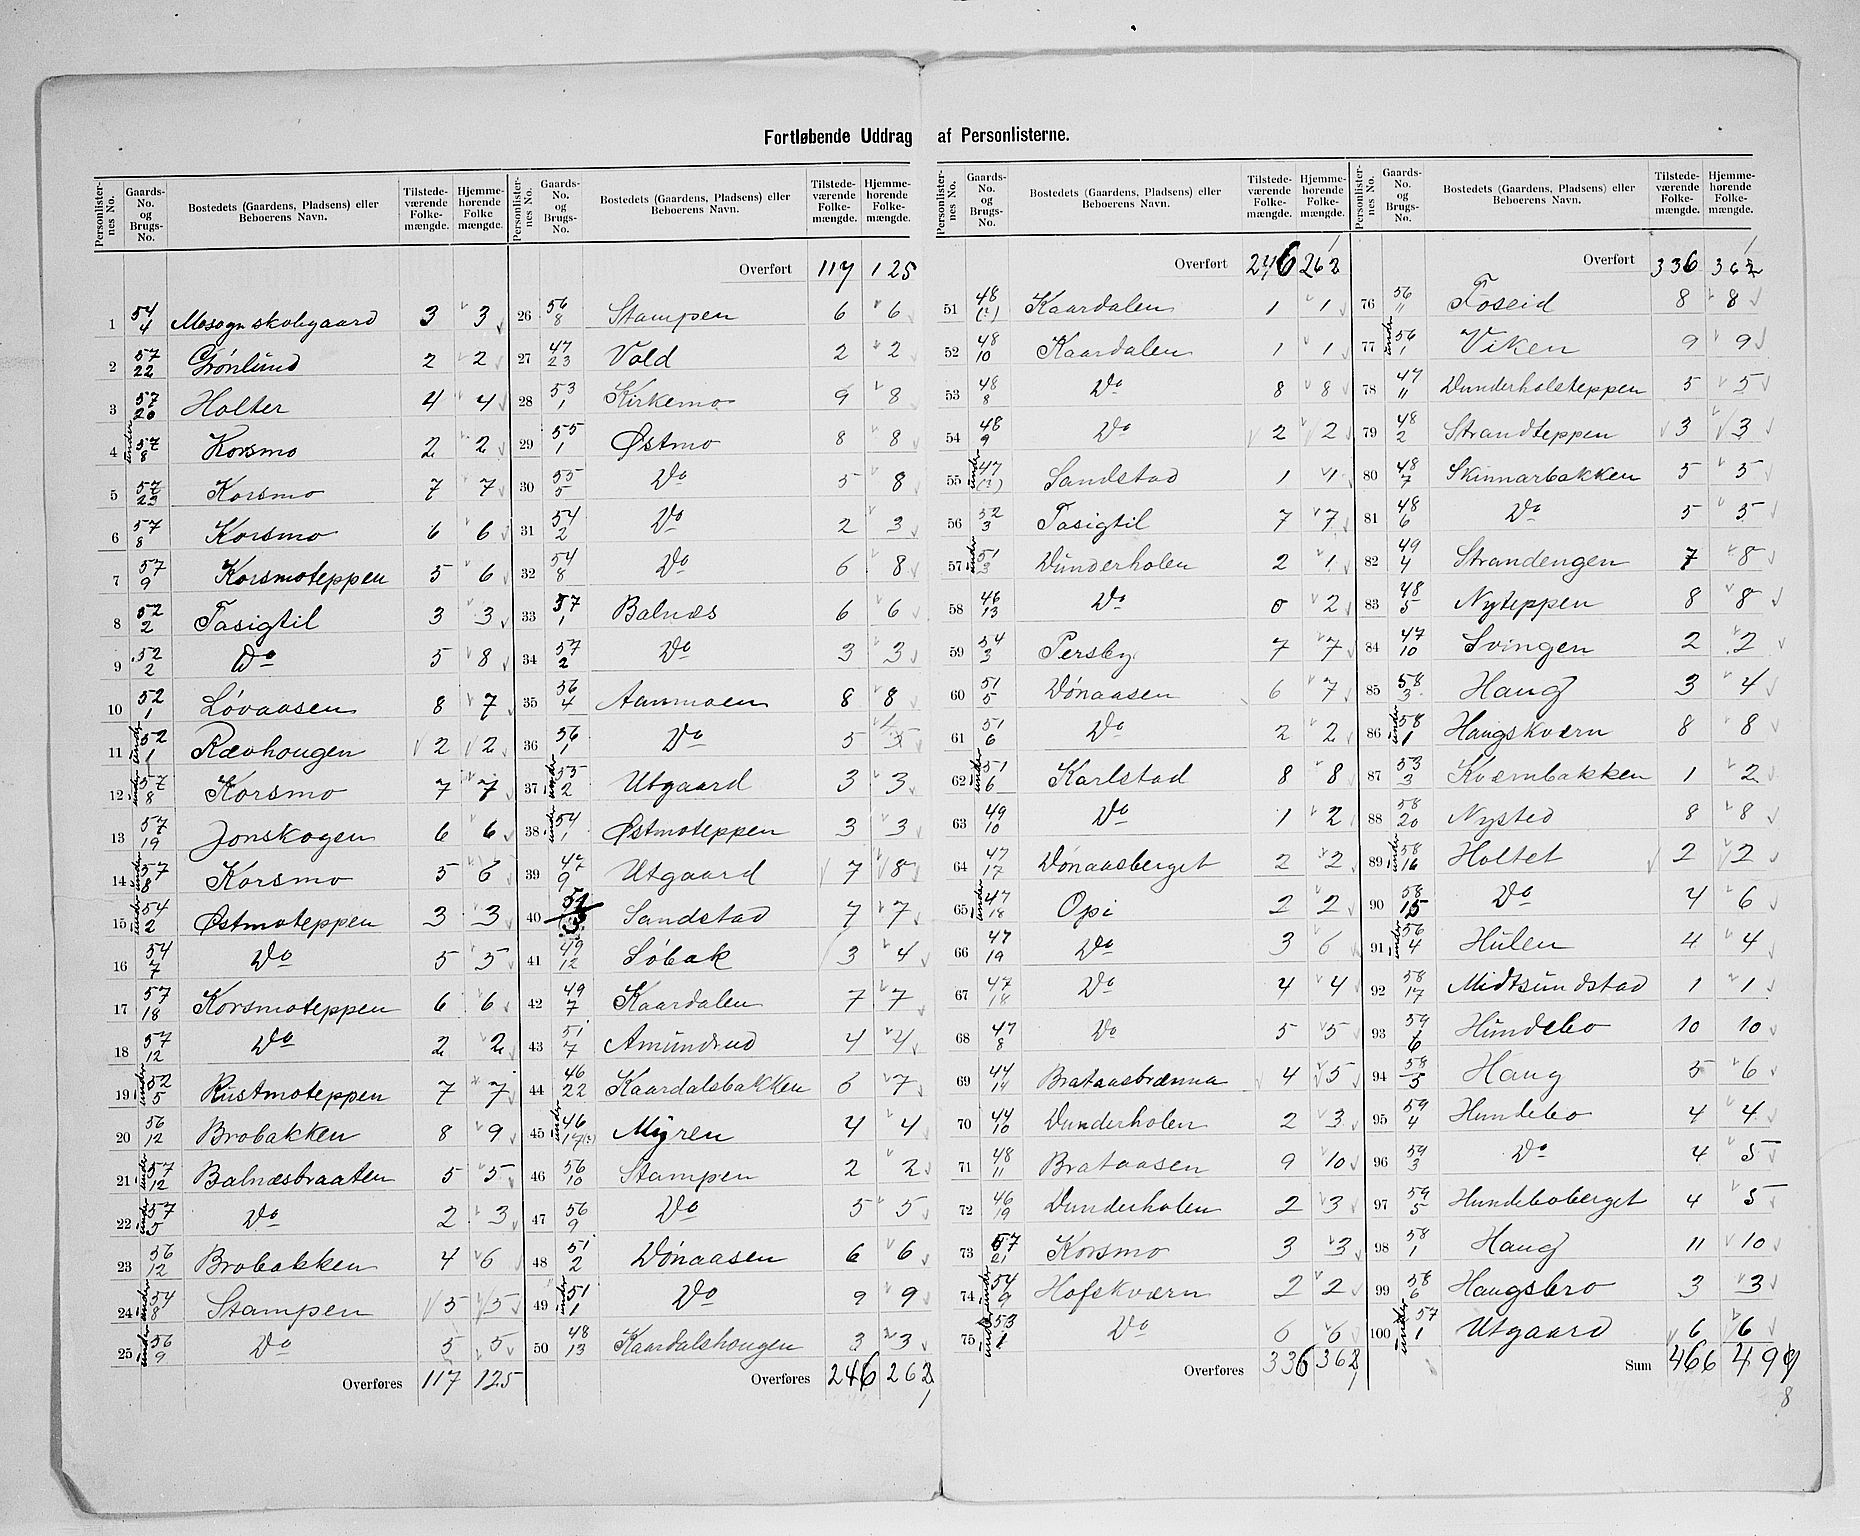 Fortløbende Uddrag af Personlisterne.
Personlister- nes No. | Gaards- No. og Brugs- No. | Bostedets (Gaardens, Pladsens) eller Beboerens Navn. | Tilstede- værende Folke- mængde. | Hjemme- hørende Folke mængde.
1 54/4 Mosogn skolegaard 3 3
2 57/22 Grønlund 2 2
3 57/20 Holter 4 4
4 under 57/8 Korsmo 2 2
5 57/23 Korsmo 7 7
6 57/8 Korsmo 6 6
7 57/9 Korsmoteppen 5 6
8 52/2 Tasigtil 3 3
9 52/2 Do 5 8
10 52/1 Løvaasen 8 7
11 under 52/1 Rævhougen 2 2
12 under 57/8 Korsmo 7 7
13 57/19 Jonskogen 6 6
14 under 57/8 Korsmo 5 6
15 under 54/2 Østmoteppen 3 3
16 54/7 Do 5 5
17 57/18 Korsmoteppen 6 6
18 57/12 Do 2 2
19 under 52/5 Rustmoteppen 7 7
20 56/12 Brobakken 8 9
21 under 57/12 Balnæsbraaten 5 5
22 under 57/5 Do 2 3
23 56/12 Brobakken 4 6
24 under 54/8 Stampen 5 5
25 under 56/9 Do 5 5
Overføres 117 125
Personlister- nes No. | Gaards- No. og Brugs- No. | Bostedets (Gaardens, Pladsens) eller Beboerens Navn. | Tilstede- værende Folke- mængde. | Hjemme- hørende Folke- mængde.
Overført 117 125
26 56/8 Stampen 6 6
27 47/23 Vold 2 2
28 53/1 Kirkemo 9 8
29 55/1 Østmo 8 8
30 55/5 Do 5 8
31 54/2 Do 2 3
32 54/8 Do 6 8
33 57/1 Balnæs 6 6
34 57/2 Do 3 3
35 56/4 Aammoen 8 8
36 56/1 Do 5 5
37 under 55/2 Utgaard 3 3
38 under 54/1 Østmoteppen 3 3
39 47/9 Utgaard 7 8
40 Sandstad 7 7
41 49/12 Søbak 3 4
42 49/7 Kaardalen 7 7
43 51/7 Amundrud 4 4
44 46/22 Kaardalsbakken 6 7
45 under 46/17(?) Myren 4 4
46 56/10 Stampen 2 2
47 56/9 Do 5 5
48 51/2 Dønaasen 6 6
49 under 51/1 Do 9 9
50 48/13 Kaardalshougen 3 3
Overføres 246 262 1
Personlister- nes No. | Gaards- No. og Brugs- No. | Bostedets (Gaardens, Pladsens) eller Beboerens Navn. | Tilstede- værende Folke- mængde. | Hjemme- hørende Folke- mængde.
Overført 246 262 1
51 48/(?) Kaardalen 1 1
52 48/10 Kaardalen 1 1
53 48/8 Do 8 8
54 48/9 Do 2 2
55 under 47/(?) Sandstad 1 1
56 52/3 Tasigtil 7 7
57 under 51/3 Dunderholen 2 1
58 46/13 Do 0 2
59 54/3 Persby 7 7
60 51/5 Dønaasen 6 7
61 51/6 Do 2 2
62 under 51/6 Karlstad 8 8
63 49/10 Do 1 2
64 47/17 Dønaasberget 2 2
65 under 47/18 Opi 2 2
66 47/19 Do 3 6
67 47/18 Do 4 4
68 47/8 Do 5 5
69 44/14 Brataasbrænna 4 5
70 44/10 Dunderholen 2 3
71 48/11 Brataasen 9 10
72 46/19 Dunderholen 2 3
73 57/21 Korsmo 3 3
74 under 54/9 Hofskværn 2 2
75 under 53/1 Do 6 6
Overføres 336 362 1
Personlister- nes No. | Gaards- No. og Brugs- No. | Bostedets (Gaardens, Pladsens) eller Beboerens Navn. | Tilstede- værende Folke- mængde. | Hjemme- hørende Folke- mængde.
Overført 336 362 1
76 56/11 Foseid 8 8
77 under 56/1 Viken 9 9
78 47/11 Dunderholsteppen 5 5
79 48/2 Strandteppen 3 3
80 48/7 Skinnarbakken 5 5
81 48/6 Do 5 5
82 49/4 Strandengen 7 8
83 48/5 Nyteppen 8 8
84 47/10 Svingen 2 2
85 58/3 Haug 3 4
86 under 58/1 Haugskværn 8 8
87 53/3 Kværnbakken 1 2
88 58/20 Nysted 8 8
89 under 58/16 Holtet 2 2
90 58/15 Do 4 6
91 under 56/4 Hulen 4 4
92 58/17 Midtsundstad 1 1
93 59/6 Hundebo 10 10
94 58/5 Haug 5 6
95 59/4 Hundebo 4 4
96 59/3 Do 4 5
97 59/5 Hundeboberget 4 5
98 58/1 Haug 11 10
99 58/6 Haugsbro 3 3
100 under 57/1 Utgaard 6 6
Sum 466 499 8